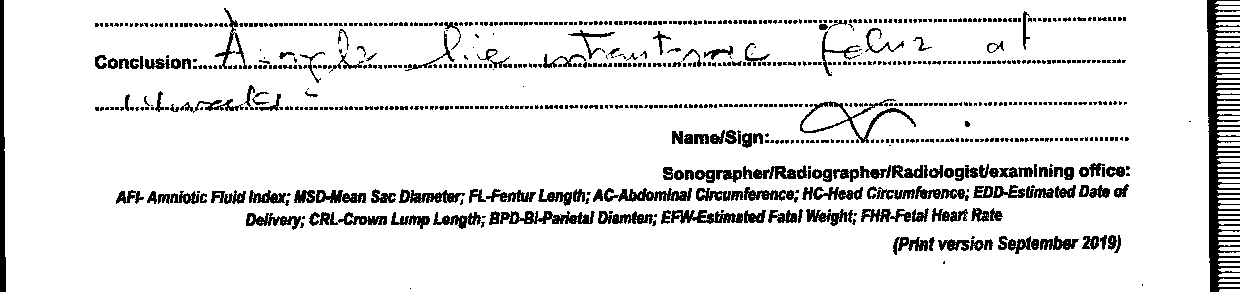 Conclusion: A single live intrauterine fetus at
14 weeks
Name/Sign:
Sonographer/Radiographer/Radiologist/examining office:
AFI- Amniotic Fluid Index; MSD-Mean Sac Diameter; FL-Fentur Length; AC-Abdominal Circumference; HC-Head Circumference; EDD-Estimated Date of
Delivery; CRL-Crown Lump Length; BPD-Bi-Parietal Diamten; EFW-Estimated Fatal Weight; FHR-Fetal Heart Rate
(Print version September 2019)